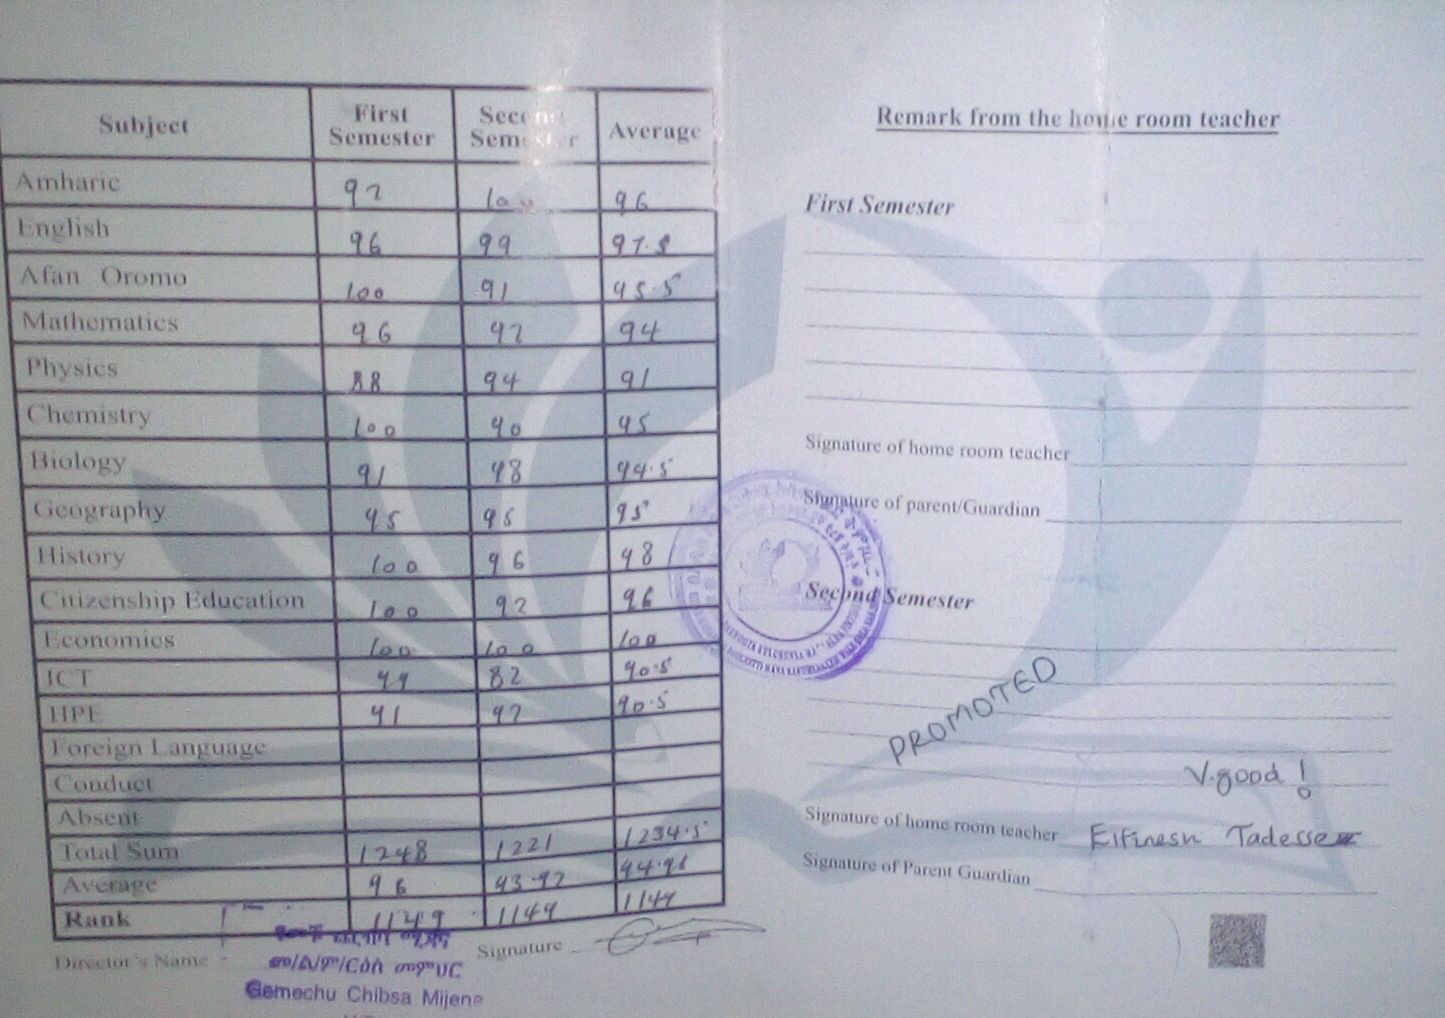 Subject First Semester Second Semester Average
Amharic 92 100 96
English 96 99 97.5
Afan Oromo 100 91 95.5
Mathematics 96 92 94
Physics 88 94 91
Chemistry 100 90 95
Biology 91 98 94.5
Geography 95 95 95
History 100 96 98
Citizenship Education 100 92 96
Economics 100 100 100
ICT 99 82 90.5
HPE 91 92 90.5
Foreign Language
Conduct
Absent
Total Sum 1248 1221 1234.5
Average 96 93.92 94.96
Rank 1149 1149 1149
Director's Name
Signature
Gemechu Chibsa Mijena
Remark from the home room teacher
First Semester
Signature of home room teacher
Signature of parent/Guardian
Second Semester
PROMOTED
V.good !
Signature of home room teacher Elfinesh Tadesse
Signature of Parent Guardian